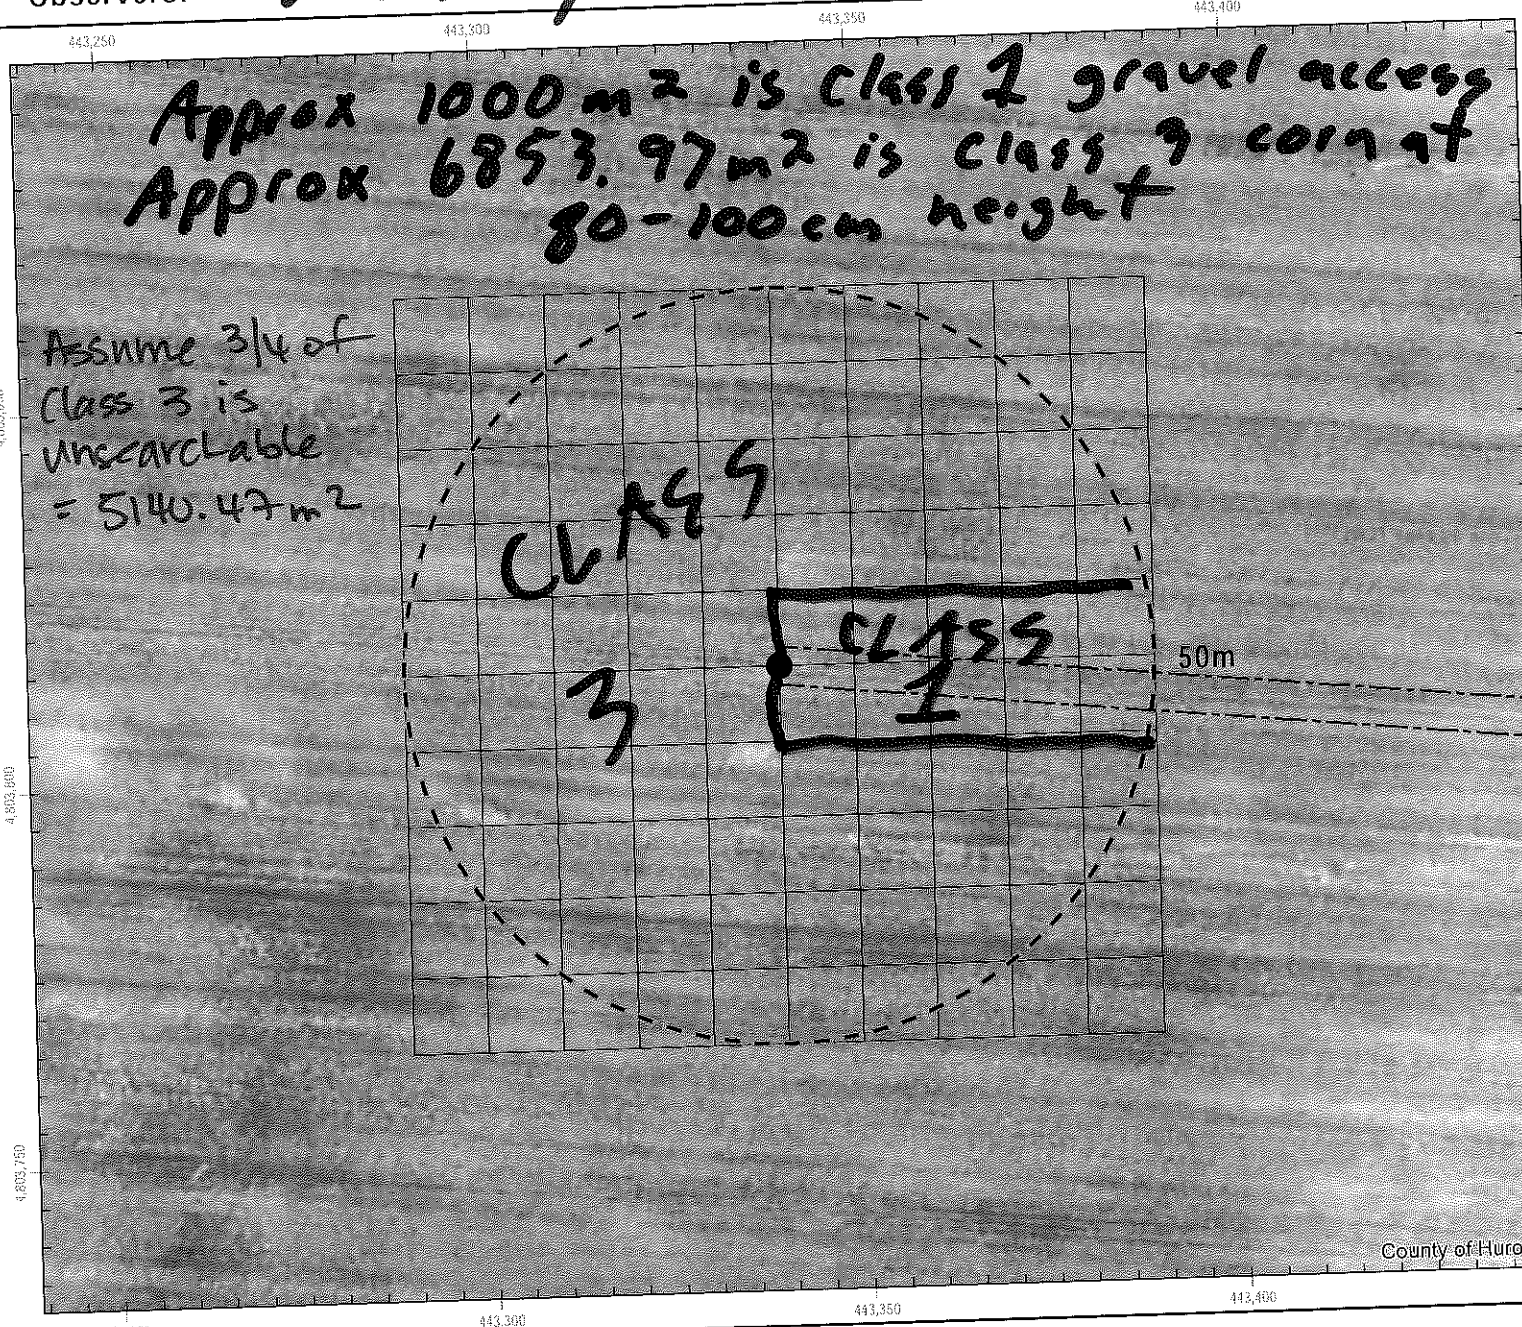 Observers:
443,250 443,300 443,350 443,400
Approx 1000m² is Class 1 gravel access
Approx 6853.97m² is Class 3 corn at
80-100cm height
Assume 3/4 of
Class 3 is
unsearchable
= 5140.47m²
CLASS
3
CLASS
1
50m
4,803,800
4,803,750
County of Huro
443,300 443,350 443,400